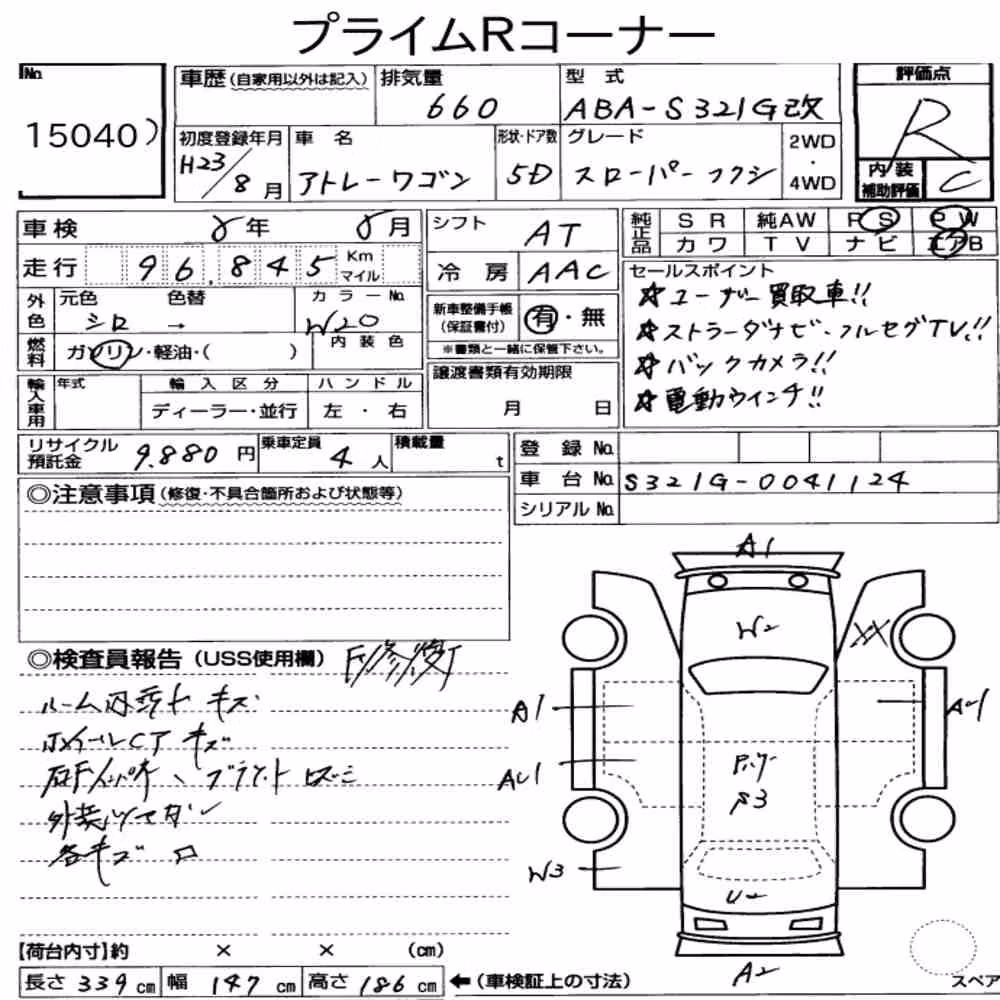 プライムRコーナー
No. 15040
車歴(自家用以外は記入) 排気量 660 型式 ABA-S321G改 評価点 R
初度登録年月 H23/8月 車名 アトレーワゴン 形状・ドア数 5D グレード スローパー フクシ 2WD・4WD 内装補助評価 C
車検 8年 8月 シフト AT 純正品 SR 純AW PS PW
カワ TV ナビ エアB
走行 96,845 Km マイル 冷房 AAC
セールスポイント
☆ユーザー買取車!!
☆ストラーダナビ・フルセグTV!!
☆バックカメラ!!
☆電動ウインチ!!
外色 元色 シロ 色替 → カラーNo. W20
新車整備手帳(保証書付) 有・無
※書類と一緒に保管下さい。
燃料 ガソリン・軽油・( ) 内装色
輸入車用 年式 輸入区分 ハンドル
ディーラー・並行 左・右
譲渡書類有効期限
月 日
リサイクル預託金 9,880円 乗車定員 4人 積載量 t
登録No.
車台No. S321G-0041124
シリアルNo.
◎注意事項(修復・不具合箇所および状態等)
◎検査員報告(USS使用欄)
ルーム内張り キズ
ホイールCア キズ
外装
各キズ
A1
W2
XX
A1
A1
W3
S3
U2
A2
【荷台内寸】約 × × (cm)
長さ 339 cm 幅 147 cm 高さ 186 cm ←(車検証上の寸法)
スペア